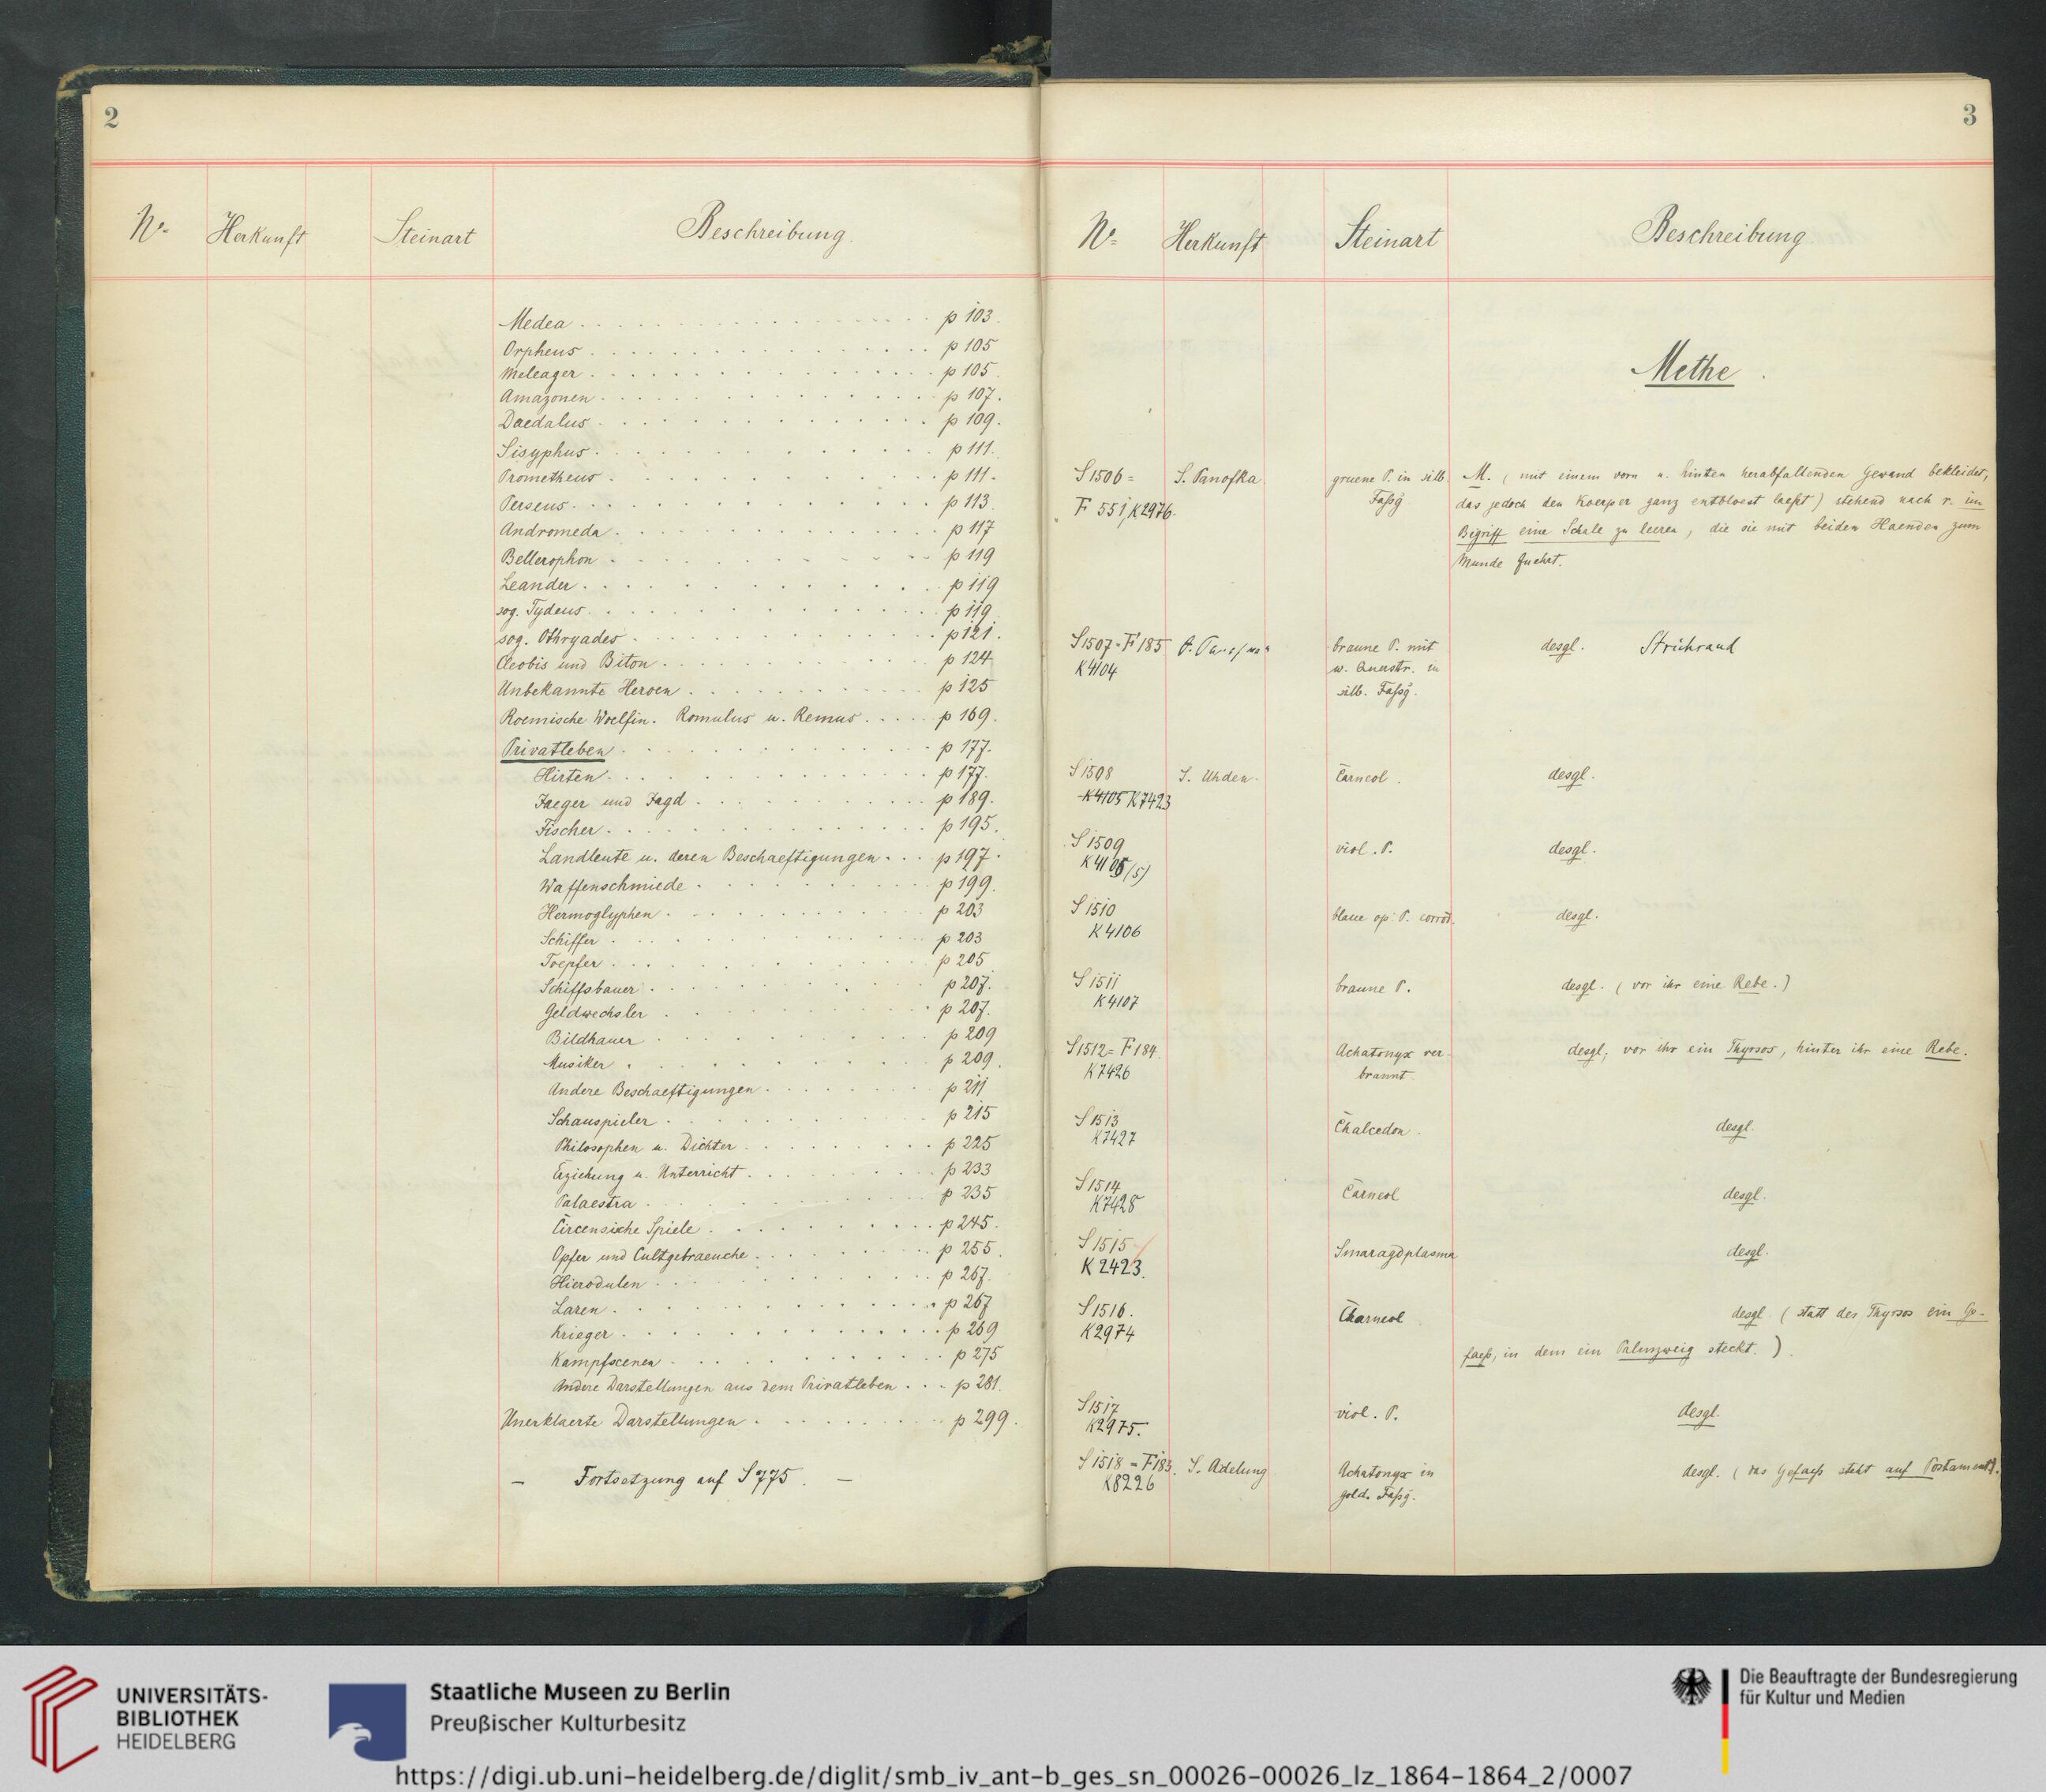 2
No Herkunft Steinart Beschreibung.
Medea p 103.
Orpheus p 105
Meleager p 105.
Amazonen p 107.
Daedalus p 109.
Sisyphus p 111.
Prometheus p 111.
Perseus p 113.
Andromeda p 117
Bellerophon p 119
Leander p 119
sog. Tydeus p 119.
sog. Othryades p 121.
Cleobis und Biton p 124
Unbekannte Heroen p 125
Roemische Woelfin. Romulus u. Remus p 169.
Privatleben p 177.
Hirten p 177.
Jaeger und Jagd p 189.
Fischer p 195.
Landleute u. deren Beschaeftigungen p 197.
Waffenschmiede p 199.
Hermoglyphen p 203
Schiffer p 203
Toepfer p 205
Schiffsbauer p 207.
Geldwechsler p 207.
Bildhauer p 209
Musiker p 209.
Andere Beschaeftigungen p 211
Schauspieler p 215
Philosophen u. Dichter p 225
Erziehung u. Unterricht p 233
Palaestra p 235
Circensische Spiele p 245.
Opfer und Cultgebraeuche p 255.
Hierodulen p 267.
Laren p 267
Krieger p 269
Kampfscenen p 275
Andere Darstellungen aus dem Privatleben p 281.
Unerklaerte Darstellungen p 299.
– Fortsetzung auf S 775. –
3
No Herkunft Steinart Beschreibung
Methe.
S 1506 = S. Panofka gruene P. in silb. M. (mit einem vorn u. hinten herabfallenden Gewand bekleidet,
F 551, K2976. Faßg. das jedoch den Koerper ganz entbloest laeßt) stehend nach r. im
Bigriff eine Schale zu leeren, die sie mit beiden Haenden zum
Munde fuehrt.
S 1507 = F 185 braune P. mit desgl. Strichrand
K 4104 w. Querstr. in
silb. Faßg.
S 1508 S. Uhden. Carneol. desgl.
K4105 K7423
S 1509 viol. P. desgl.
K 4105 (S)
S 1510 blaue op. P. corrod. desgl.
K 4106
S 1511 braune P. desgl. (vor ihr eine Rebe.)
K 4107
S 1512 = F 184. Achatonyx ver- desgl, vor ihr ein Thyrsos, hinter ihr eine Rebe.
K 7426 brannt.
S 1513 Chalcedon. desgl.
K7427
S 1514 Carneol desgl.
K7428
S 1515 Smaragdplasma desgl.
K 2423.
S 1516. Charneol. desgl. (statt des Thyrsos ein Ge-
K 2974 faeß, in dem ein Palmzweig steckt.).
S 1517 viol. P. desgl.
K2975.
S 1518 = F183. S. Adelung Achatonyx in desgl. (das Gefaeß steht auf Postament).
K8226 gold. Faßg.
UNIVERSITÄTS-
BIBLIOTHEK
HEIDELBERG
Staatliche Museen zu Berlin
Preußischer Kulturbesitz
Die Beauftragte der Bundesregierung
für Kultur und Medien
https://digi.ub.uni-heidelberg.de/diglit/smb_iv_ant-b_ges_sn_00026-00026_lz_1864-1864_2/0007